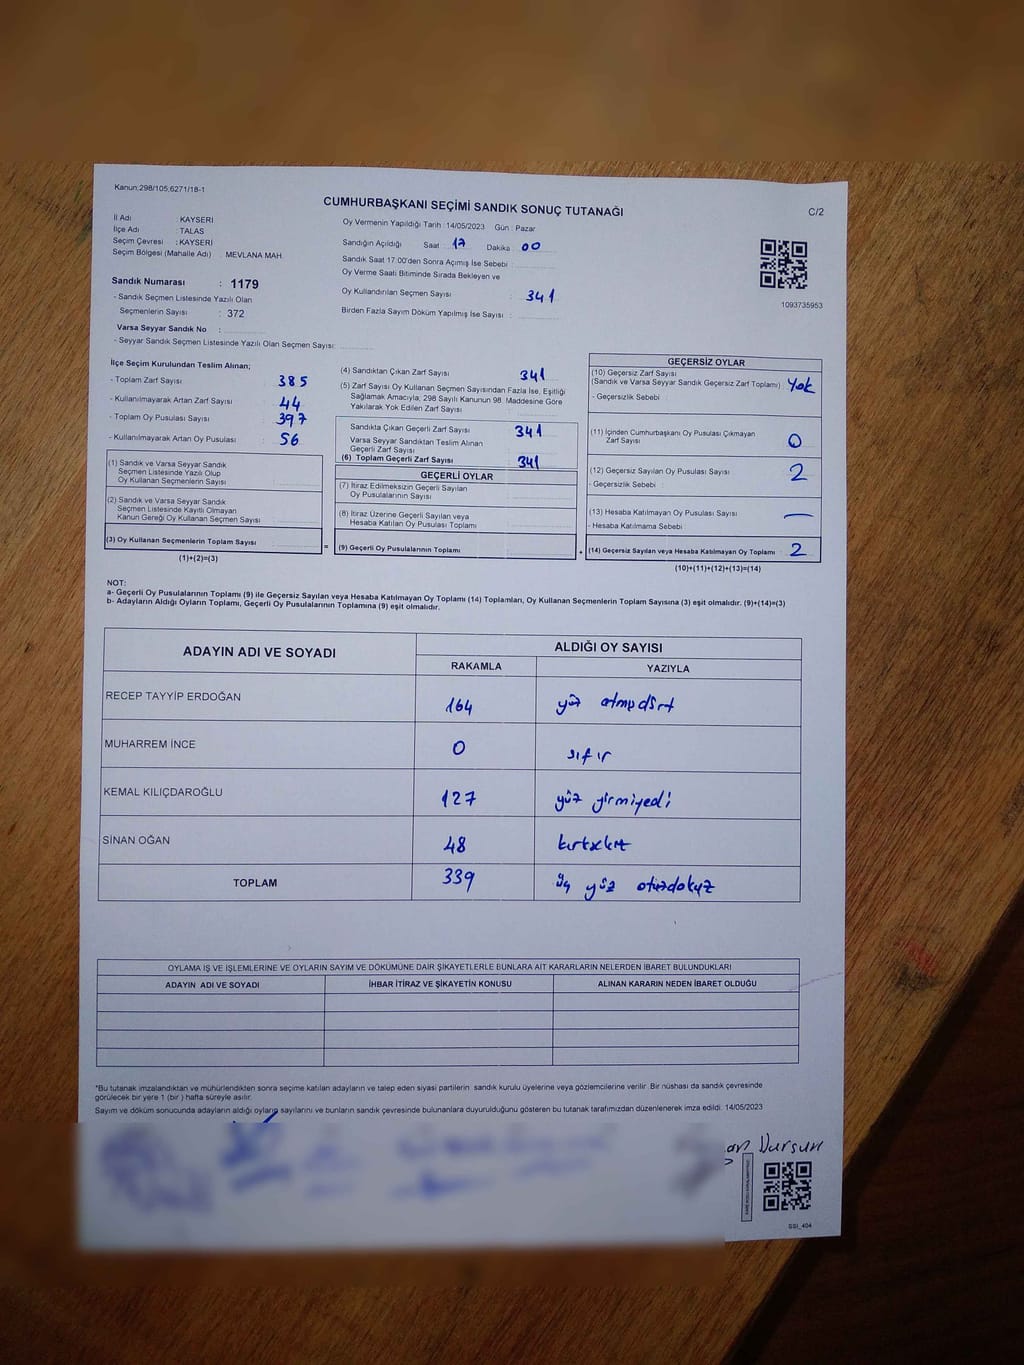 Kanun;298/105,6271/18-1
CUMHURBAŞKANI SEÇİMİ SANDIK SONUÇ TUTANAĞI
C/2
İl Adı : KAYSERİ
İlçe Adı : TALAS
Seçim Çevresi : KAYSERİ
Seçim Bölgesi (Mahalle Adı) : MEVLANA MAH.
Oy Vermenin Yapıldığı Tarih : 14/05/2023 Gün : Pazar
Sandığın Açıldığı Saat : 17 Dakika : 00
Sandık Saat 17:00'den Sonra Açımış İse Sebebi :
Oy Verme Saati Bitiminde Sırada Bekleyen ve
Oy Kullandırılan Seçmen Sayısı : 341
Birden Fazla Sayım Döküm Yapılmış İse Sayısı :
1093735953
Sandık Numarası : 1179
- Sandık Seçmen Listesinde Yazılı Olan
Seçmenlerin Sayısı : 372
Varsa Seyyar Sandık No :
- Seyyar Sandık Seçmen Listesinde Yazılı Olan Seçmen Sayısı:
İlçe Seçim Kurulundan Teslim Alınan;
- Toplam Zarf Sayısı : 385
- Kullanılmayarak Artan Zarf Sayısı : 44
- Toplam Oy Pusulası Sayısı : 397
- Kullanılmayarak Artan Oy Pusulası : 56
(1) Sandık ve Varsa Seyyar Sandık
Seçmen Listesinde Yazılı Olup
Oy Kullanan Seçmenlerin Sayısı :
(2) Sandık ve Varsa Seyyar Sandık
Seçmen Listesinde Kayıtlı Olmayan
Kanun Gereği Oy Kullanan Seçmen Sayısı :
(3) Oy Kullanan Seçmenlerin Toplam Sayısı :
(1)+(2)=(3)
=
(4) Sandıktan Çıkan Zarf Sayısı : 341
(5) Zarf Sayısı Oy Kullanan Seçmen Sayısından Fazla İse, Eşitliği
Sağlamak Amacıyla; 298 Sayılı Kanunun 98. Maddesine Göre
Yakılarak Yok Edilen Zarf Sayısı :
Sandıkta Çıkan Geçerli Zarf Sayısı : 341
Varsa Seyyar Sandıktan Teslim Alınan
Geçerli Zarf Sayısı :
(6) Toplam Geçerli Zarf Sayısı : 341
GEÇERLİ OYLAR
(7) İtiraz Edilmeksizin Geçerli Sayılan
Oy Pusulalarının Sayısı :
(8) İtiraz Üzerine Geçerli Sayılan veya
Hesaba Katılan Oy Pusulası Toplamı :
(9) Geçerli Oy Pusulalarının Toplamı :
+
GEÇERSİZ OYLAR
(10) Geçersiz Zarf Sayısı
(Sandık ve Varsa Seyyar Sandık Geçersiz Zarf Toplamı) : Yok
- Geçersizlik Sebebi :
(11) İçinden Cumhurbaşkanı Oy Pusulası Çıkmayan
Zarf Sayısı : 0
(12) Geçersiz Sayılan Oy Pusulası Sayısı : 2
- Geçersizlik Sebebi :
(13) Hesaba Katılmayan Oy Pusulası Sayısı : —
- Hesaba Katılmama Sebebi :
(14) Geçersiz Sayılan veya Hesaba Katılmayan Oy Toplamı : 2
(10)+(11)+(12)+(13)=(14)
NOT:
a- Geçerli Oy Pusulalarının Toplamı (9) ile Geçersiz Sayılan veya Hesaba Katılmayan Oy Toplamı (14) Toplamları, Oy Kullanan Seçmenlerin Toplam Sayısına (3) eşit olmalıdır. (9)+(14)=(3)
b- Adayların Aldığı Oyların Toplamı, Geçerli Oy Pusulalarının Toplamına (9) eşit olmalıdır.
ADAYIN ADI VE SOYADI
ALDIĞI OY SAYISI
RAKAMLA YAZIYLA
RECEP TAYYİP ERDOĞAN 164 yüz atmışdört
MUHARREM İNCE 0 sıfır
KEMAL KILIÇDAROĞLU 127 yüz yirmiyedi
SİNAN OĞAN 48 kırksekiz
TOPLAM 339 üç yüz otuzdokuz
OYLAMA İŞ VE İŞLEMLERİNE VE OYLARIN SAYIM VE DÖKÜMÜNE DAİR ŞİKAYETLERLE BUNLARA AİT KARARLARIN NELERDEN İBARET BULUNDUKLARI
ADAYIN ADI VE SOYADI İHBAR İTİRAZ VE ŞİKAYETİN KONUSU ALINAN KARARIN NEDEN İBARET OLDUĞU
*Bu tutanak imzalandıktan ve mühürlendikten sonra seçime katılan adayların ve talep eden siyasi partilerin sandık kurulu üyelerine veya gözlemcilerine verilir. Bir nüshası da sandık çevresinde
görülecek bir yere 1 (bir ) hafta süreyle asılır.
Sayım ve döküm sonucunda adayların aldığı oyların sayılarını ve bunların sandık çevresinde bulunanlara duyurulduğunu gösteren bu tutanak tarafımızdan düzenlenerek imza edildi. 14/05/2023
Dursun
SSI_404